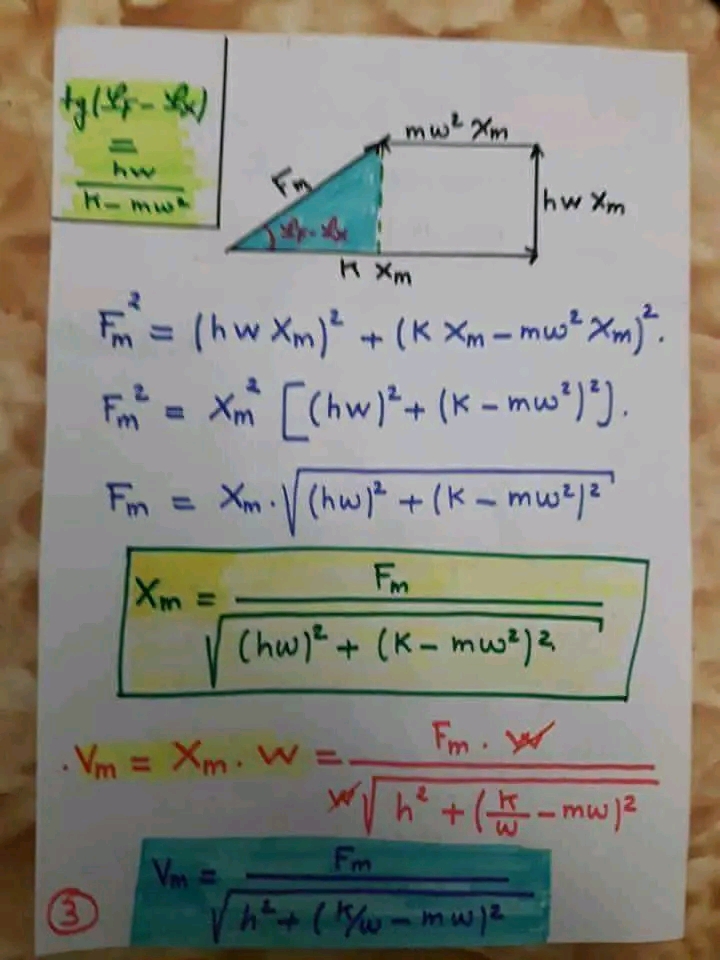 tg(φF - φx)
=
hw
K - mw²
mw² Xm
Fm
hw Xm
φF - φx
K Xm
Fm² = (hw Xm)² + (K Xm - mw² Xm)².
Fm² = Xm² [(hw)² + (K - mw²)²].
Fm = Xm . √(hw)² + (K - mw²)²
Xm = Fm / √(hw)² + (K - mw²)²
. Vm = Xm . W = Fm . W / W √h² + (K/w - mw)²
Vm = Fm / √h² + (K/w - mw)²
3